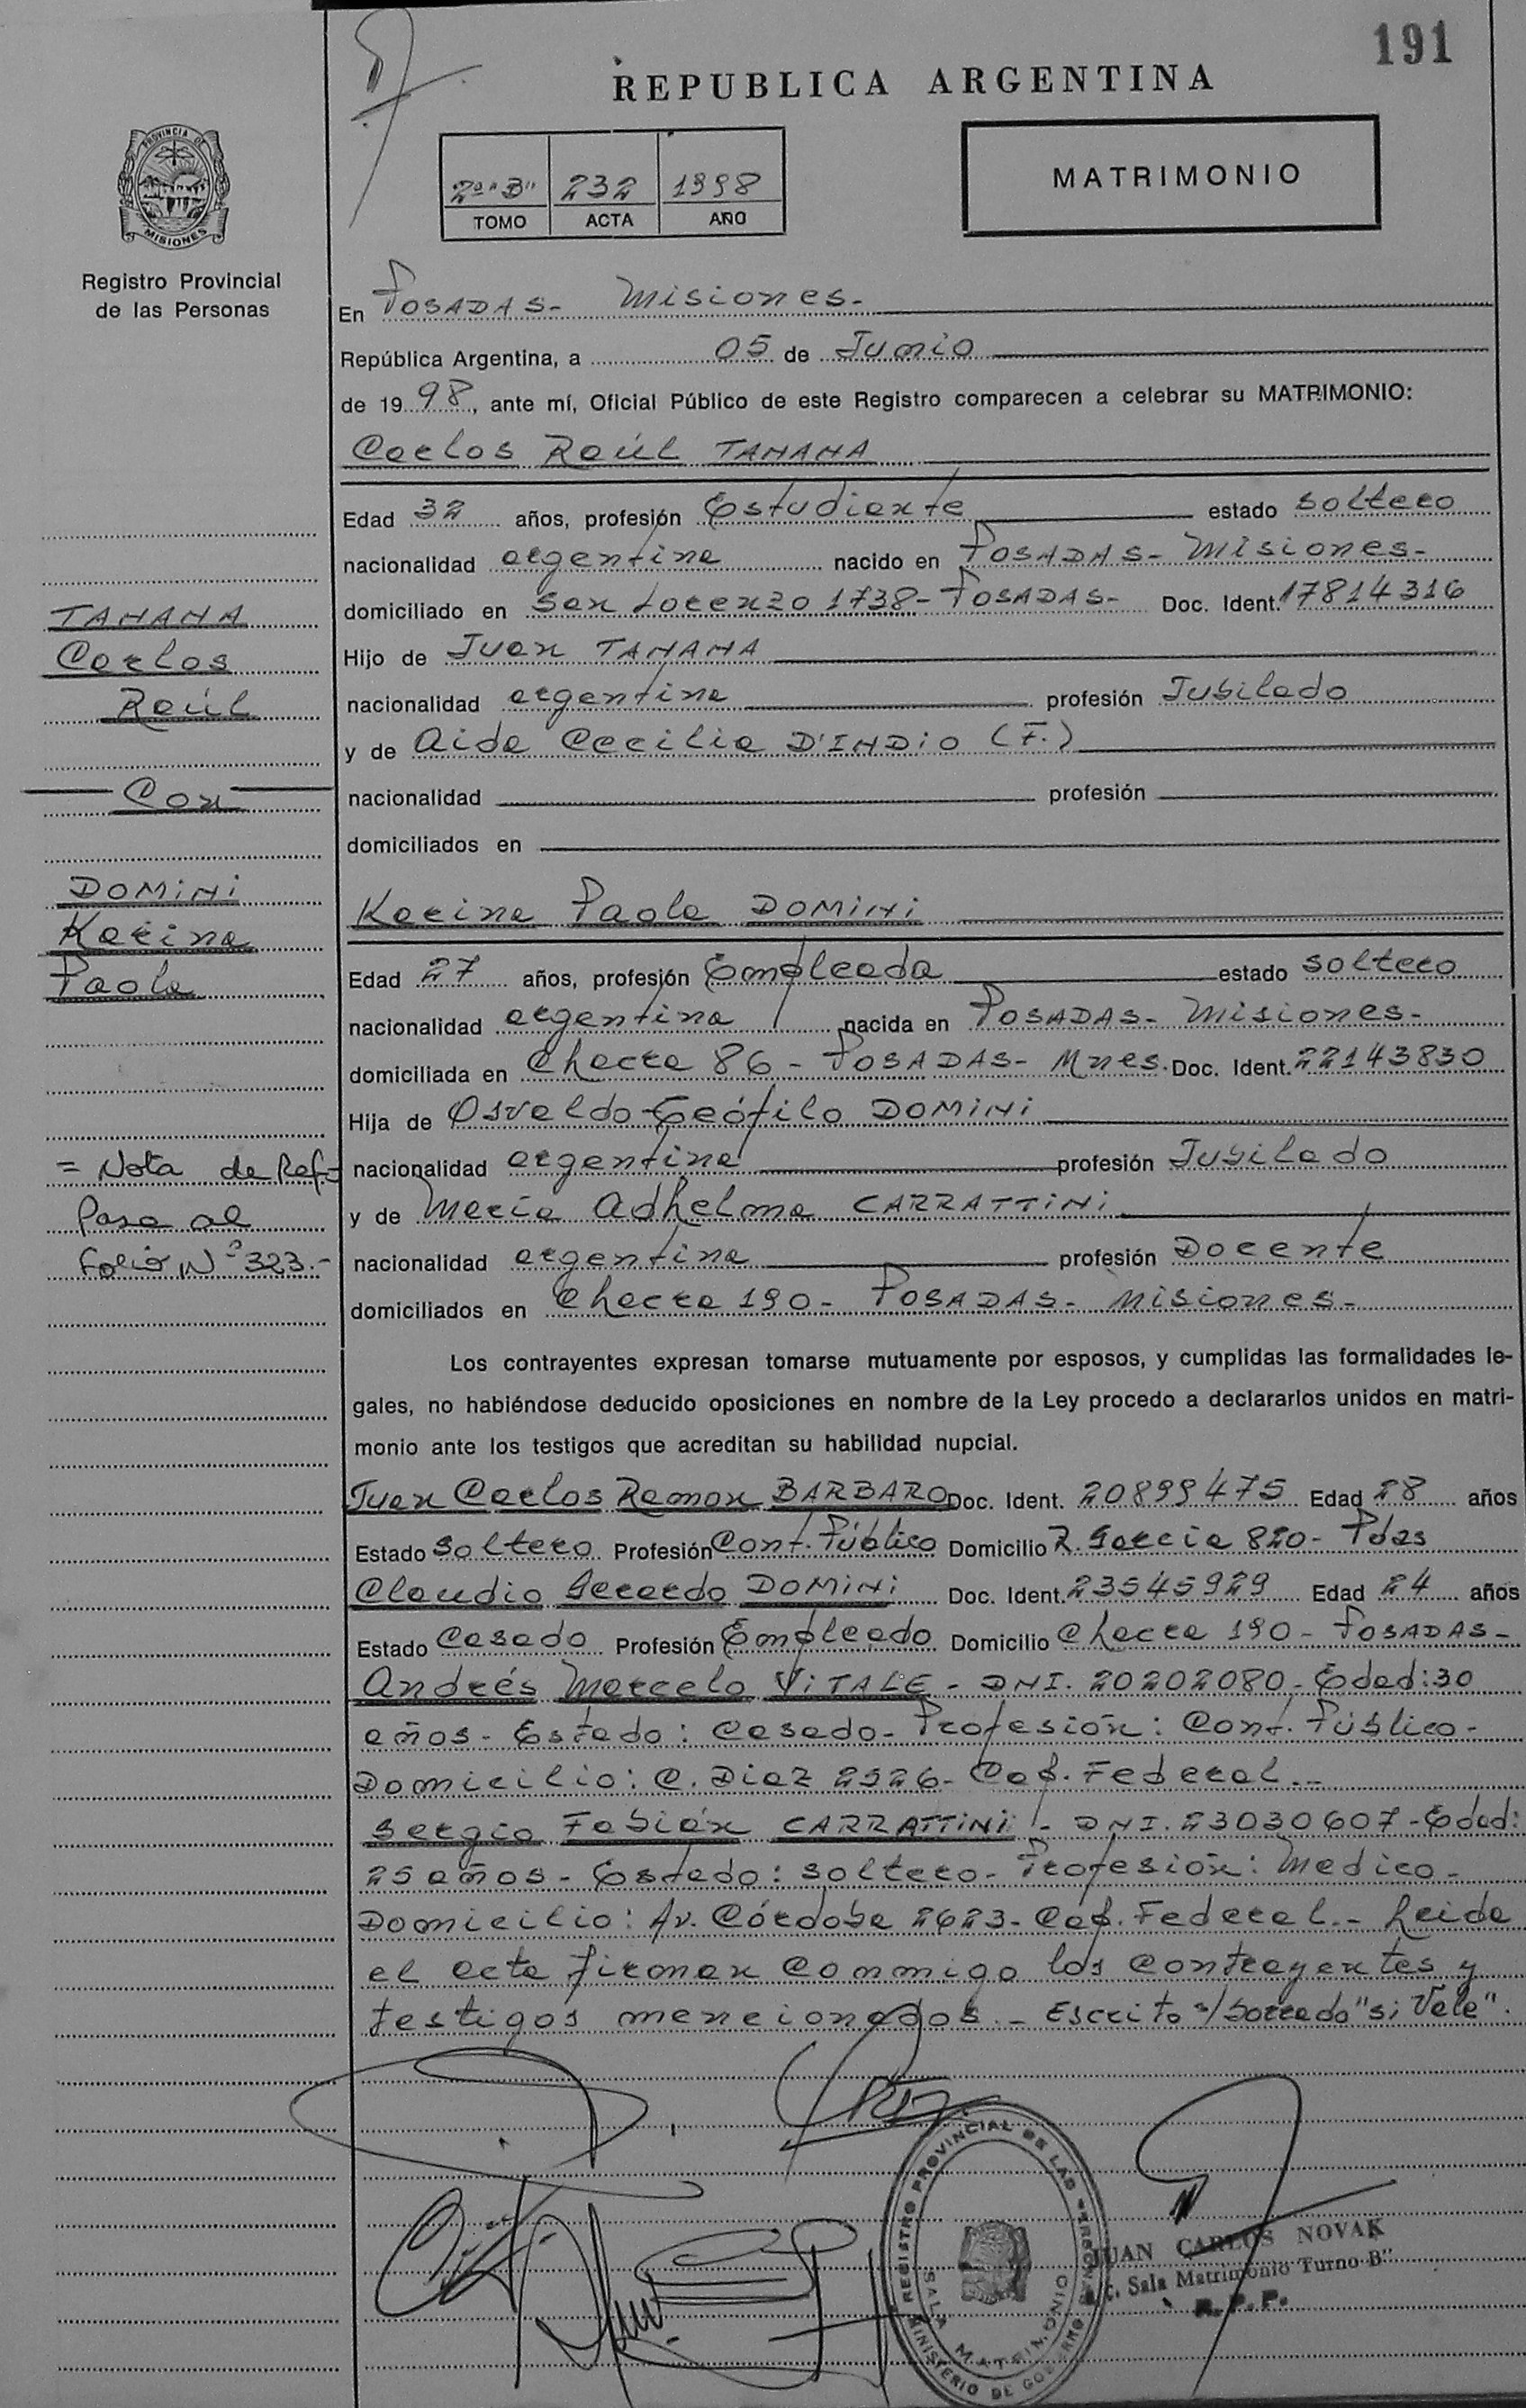 191
REPUBLICA ARGENTINA
2º "B" 232 1998
TOMO ACTA AÑO
MATRIMONIO
PROVINCIA DE
MISIONES
Registro Provincial
de las Personas
En POSADAS- Misiones-
República Argentina, a 05 de Junio
de 1998, ante mí, Oficial Público de este Registro comparecen a celebrar su MATRIMONIO:
Carlos Raúl TANANA
Edad 32 años, profesión Estudiante estado soltero
nacionalidad argentina nacido en POSADAS- Misiones-
domiciliado en San Lorenzo 1738- POSADAS- Doc. Ident. 17814316
Hijo de Juan TANANA
nacionalidad argentina profesión Jubilado
y de Aida Cecilia D'INDIO (F.)
nacionalidad profesión
domiciliados en
Karina Paola DOMINI
Edad 27 años, profesión Empleada estado soltero
nacionalidad argentina nacida en POSADAS- Misiones-
domiciliada en Chacra 86 - POSADAS- Mnes. Doc. Ident. 22143830
Hija de Osvaldo Teófilo DOMINI
nacionalidad argentina profesión Jubilado
y de María Adhelma CARRATTINI
nacionalidad argentina profesión Docente
domiciliados en Chacra 190- POSADAS- Misiones-
TANANA
Carlos
Raúl
Con
DOMINI
Karina
Paola
= Nota de Ref-
Pasa al
Folio Nº 323.-
Los contrayentes expresan tomarse mutuamente por esposos, y cumplidas las formalidades le-
gales, no habiéndose deducido oposiciones en nombre de la Ley procedo a declararlos unidos en matri-
monio ante los testigos que acreditan su habilidad nupcial.
Juan Carlos Ramon BARBARO Doc. Ident. 20899475 Edad 28 años
Estado soltero Profesión Cont. Público Domicilio R. García 820- Pdas
Claudio Gerardo DOMINI Doc. Ident. 23545929 Edad 24 años
Estado Casado Profesión Empleado Domicilio Chacra 190- POSADAS-
Andrés Marcelo VITALE - DNI. 20202080- Edad: 30
años- Estado: Casado- Profesión: Cont. Público-
Domicilio: C. Diaz 2526- Cap. Federal.-
Sergio Fabián CARRATTINI - DNI. 23030607-Edad:
25 años- Estado: soltero- Profesión: Medico-
Domicilio: Av. Córdoba 2623- Cap. Federal.- Leida
el acta firman conmigo los contrayentes y
testigos mencionados.- Escrito s/borrado "si Vale".
REGISTRO PROVINCIAL DE LAS PERSONAS
SALA MATRIMONIO
MINISTERIO DE GOBIERNO
JUAN CARLOS NOVAK
Sala Matrimonio Turno B"
R.P.P.